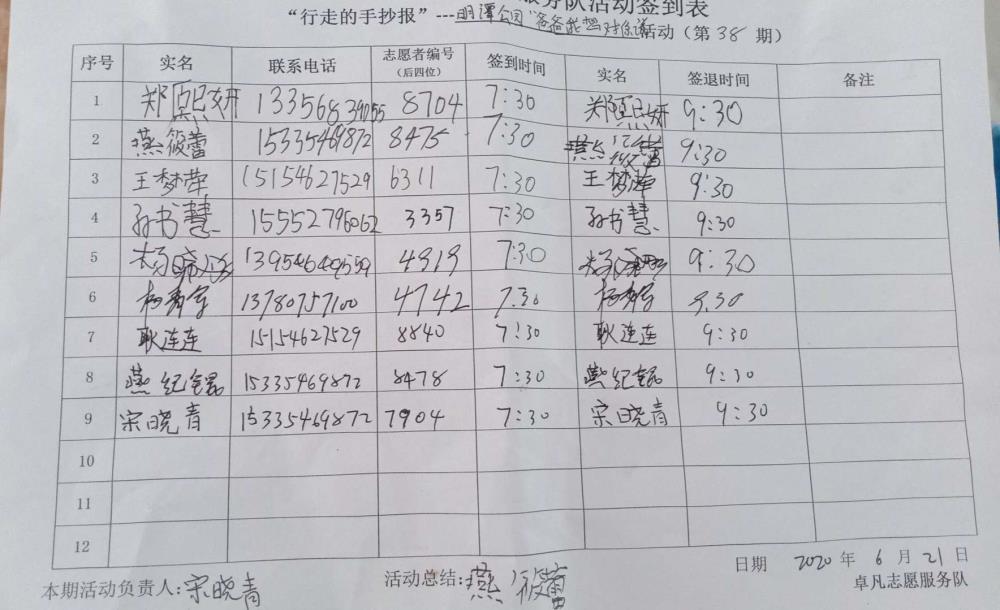 服务队活动签到表
“行走的手抄报”---明潭公园“爸爸我想对你说”活动（第 38 期）
序号 实名 联系电话 志愿者编号（后四位） 签到时间 实名 签退时间 备注
1 郑熙妍 13356839055 8704 7:30 郑熙妍 9:30
2 燕筱蕾 15335469872 8475 7:30 燕筱蕾 9:30
3 王梦荦 15154627529 6311 7:30 王梦荦 9:30
4 孙书慧 15552796062 3357 7:30 孙书慧 9:30
5 杨晓 4919 7:30 9:30
6 杨 13780757100 4742 7:30 杨 9:30
7 耿连连 15154627529 8840 7:30 耿连连 9:30
8 燕纪锟 15335469872 8478 7:30 燕纪锟 9:30
9 宋晓青 15335469872 7904 7:30 宋晓青 9:30
10
11
12
日期 2020 年 6 月 21 日
本期活动负责人:宋晓青 活动总结:燕筱蕾 卓凡志愿服务队